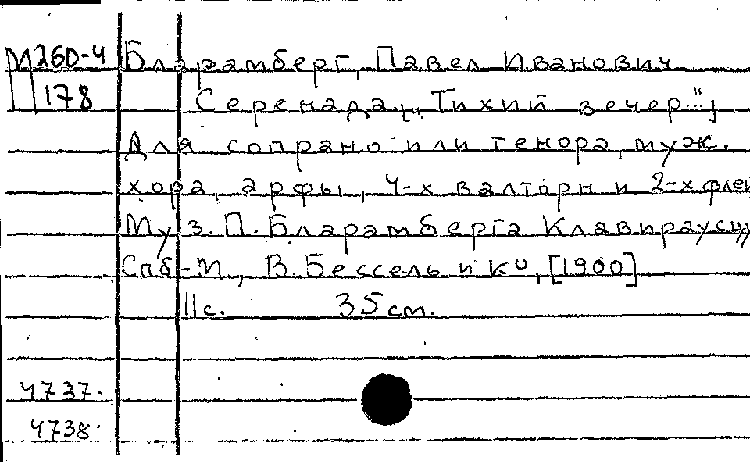 М260-4 Бларамберг, Павел Иванович
П178 Серенада [„Тихий вечер..."]
Для сопрано или тенора, муж.
хора, арфы, 4-х валторн и 2-х флей
Муз. П. Бларамберга Клавираусцу
Спб-М, В. Бессель и К°, [1900]
11с. 35 см.
4737.
4738.